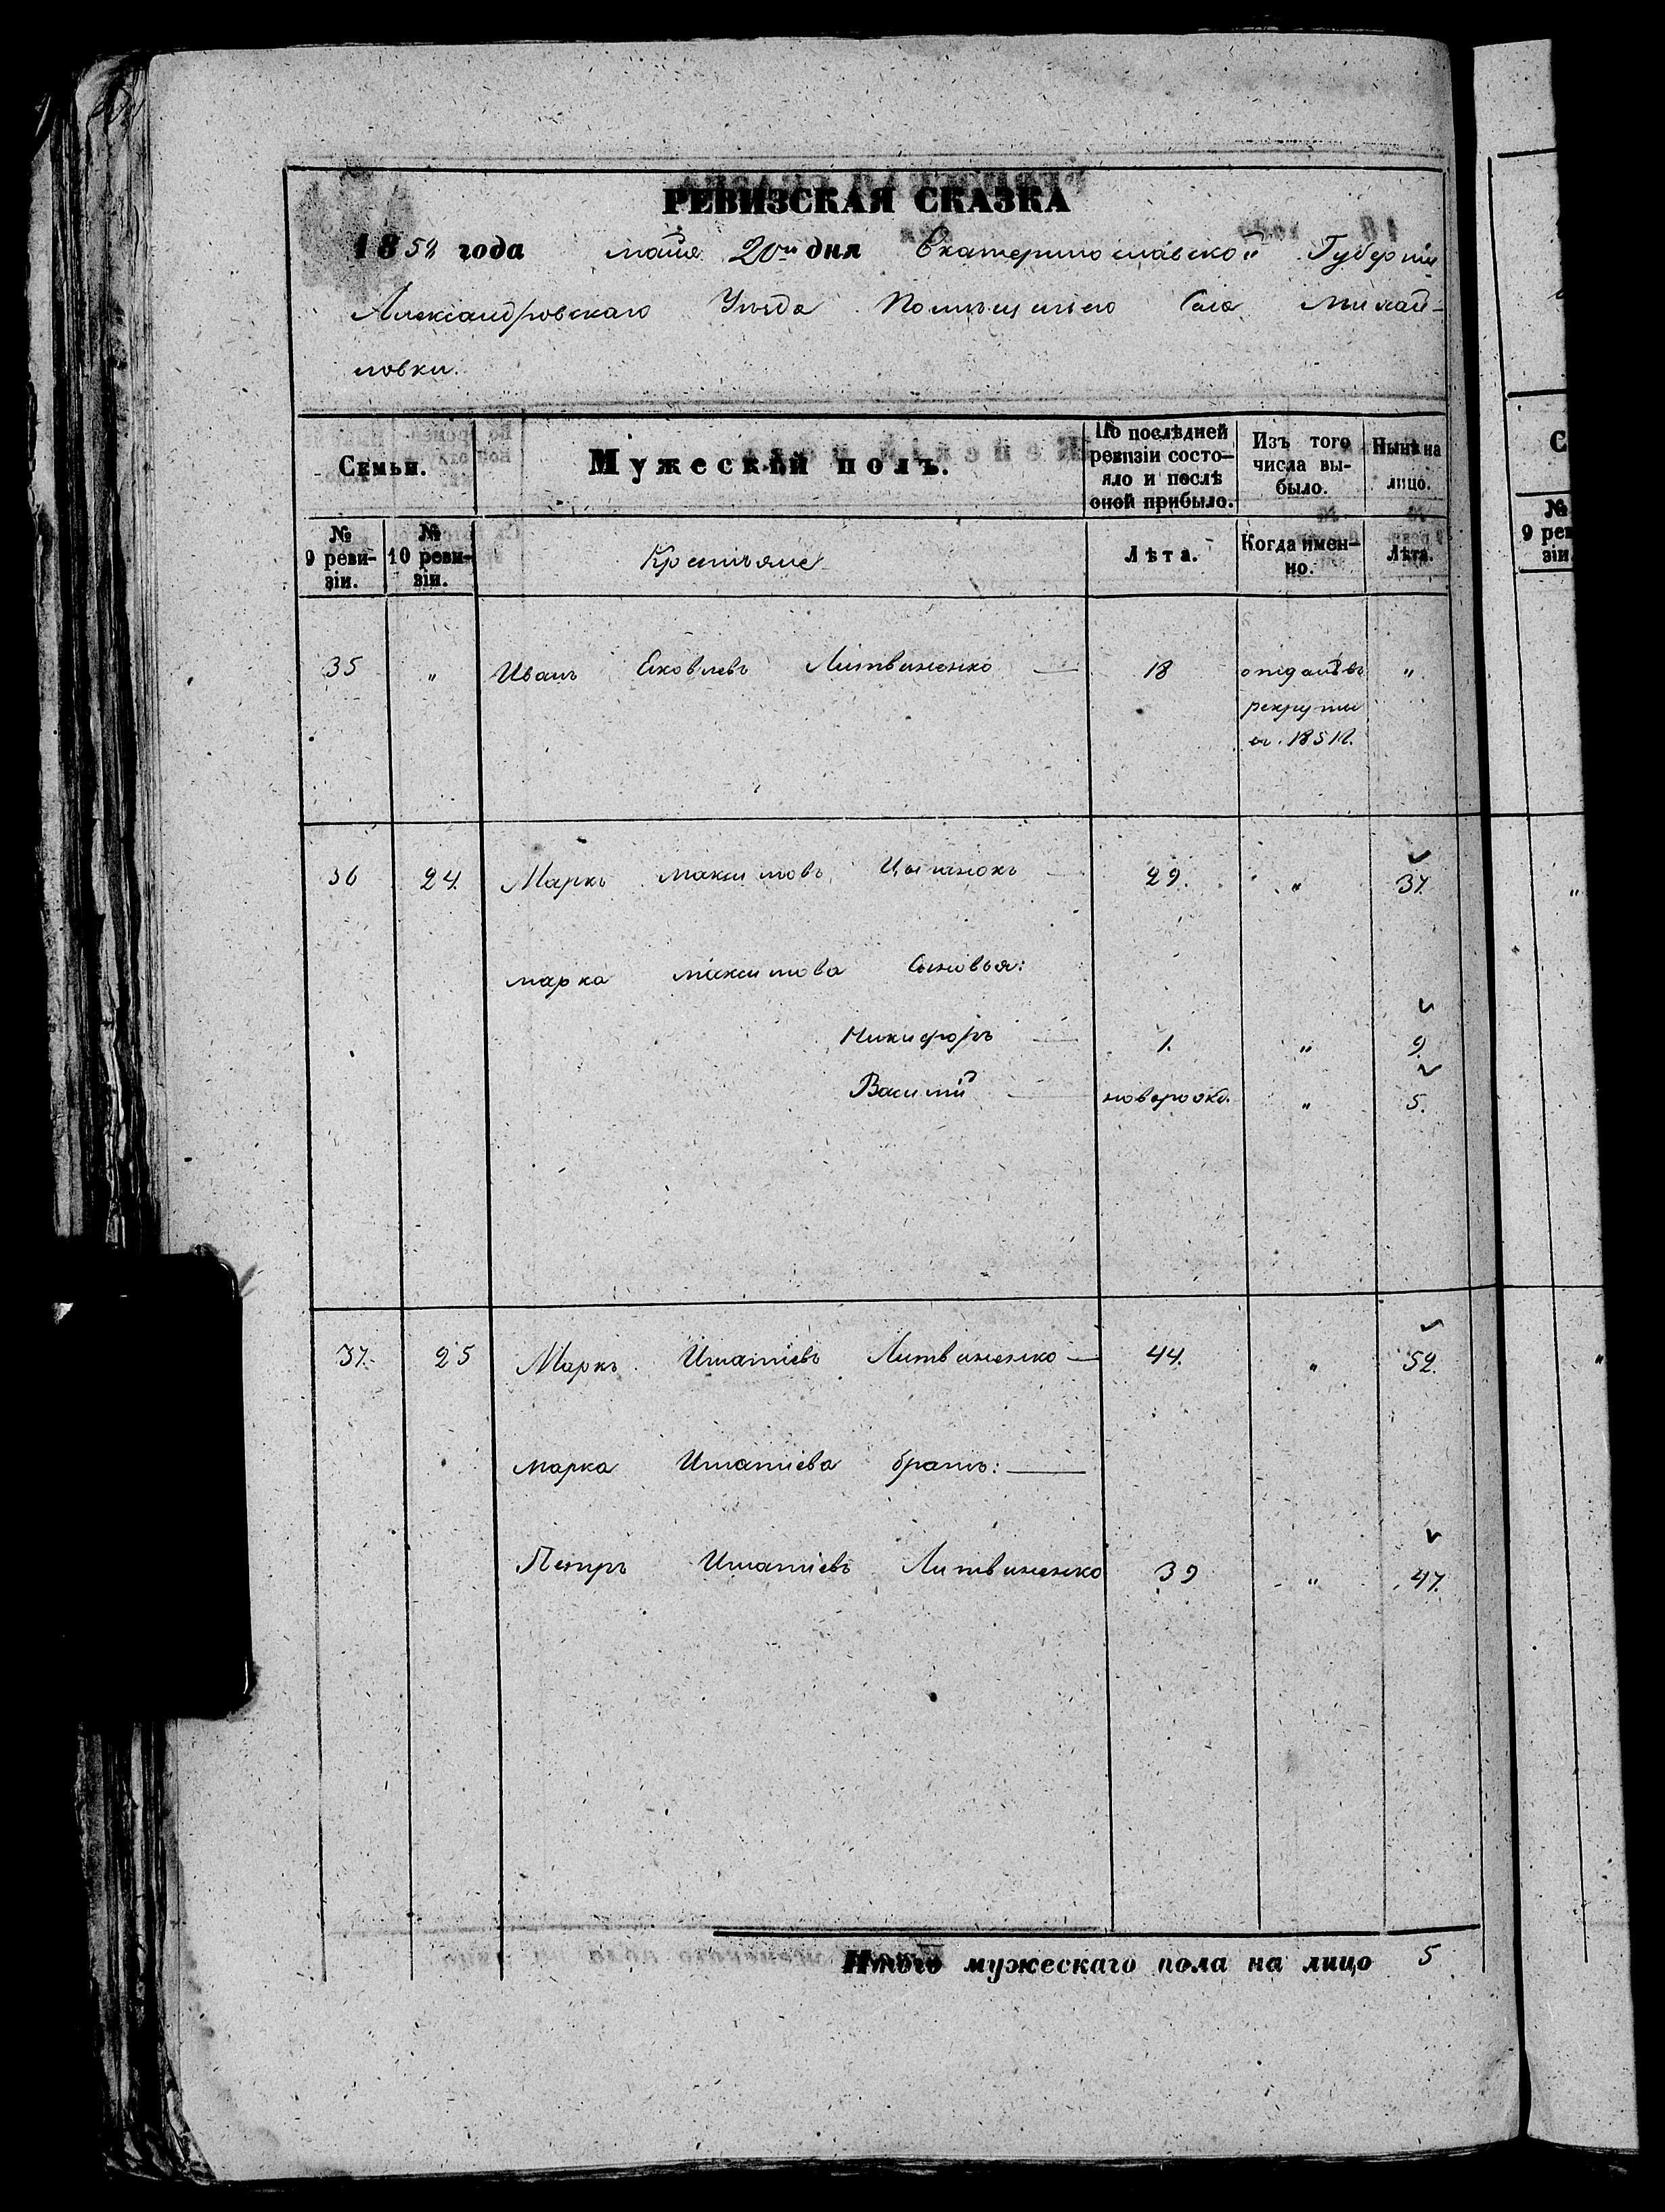 РЕВИЗСКАЯ СКАЗКА
1858 года маія 20го дня Екатеринославской Губерніи
Александровскаго Уѣзда Помѣщичьяго Села Михай-
ловки.
Семьи. Мужескій полъ. По послѣдней ревизіи состо- яло и послѣ оной прибыло. Изъ того числа вы- было. Нынѣ на лицо.
№ 9 реви- зіи. № 10 реви- зіи. Крестьяне Лѣта. Когда имен- но. Лѣта.
35 " Иванъ Яковлевъ Литвиненко — 18 отданъ въ "
рекруты
въ 1851г.
36 24. Маркъ Максимовъ Цыганокъ — 29. " 37.
Марка Максимова Сыновья:
Никифоръ — 1. " 9.
Василій — новорожд. " 5.
37. 25 Маркъ Игнатіевъ Литвиненко — 44. " 52.
Марка Игнатіева братъ: —
Петръ Игнатіевъ Литвиненко 39 " 47.
Итого мужескаго пола на лицо 5
№
9 рев
зіи